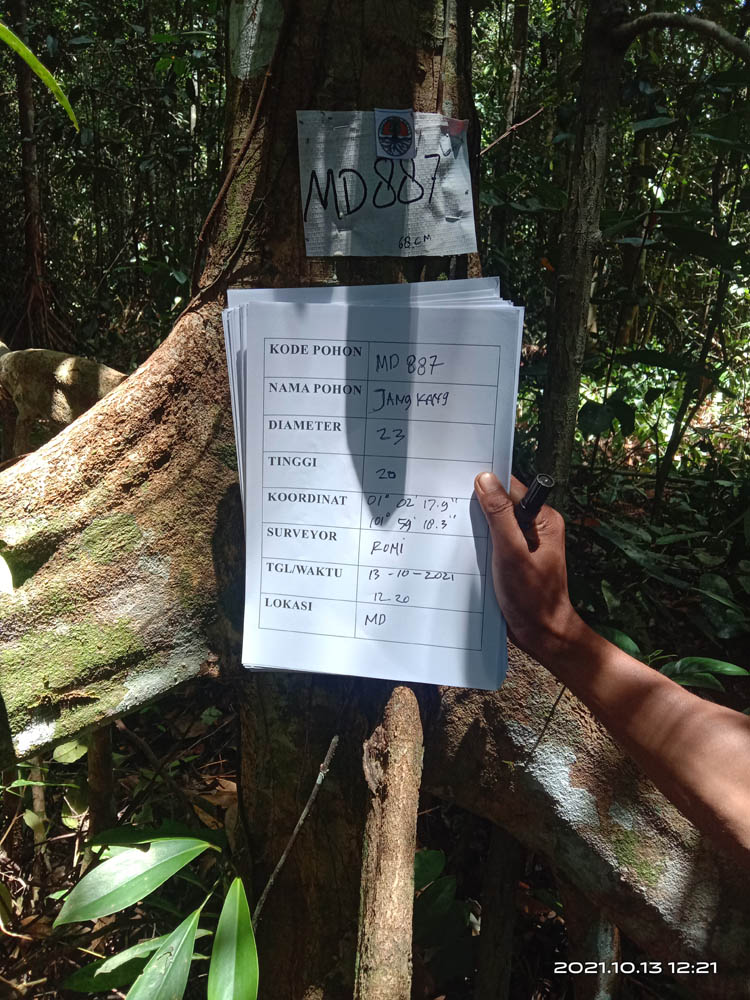 MD 887
68 CM
KODE POHON MD 887
NAMA POHON JANG KANG
DIAMETER 23
TINGGI 20
KOORDINAT 01° 02' 17.9"
101° 59' 18.3"
SURVEYOR ROMI
TGL/WAKTU 13-10-2021
12.20
LOKASI MD
2021.10.13 12:21